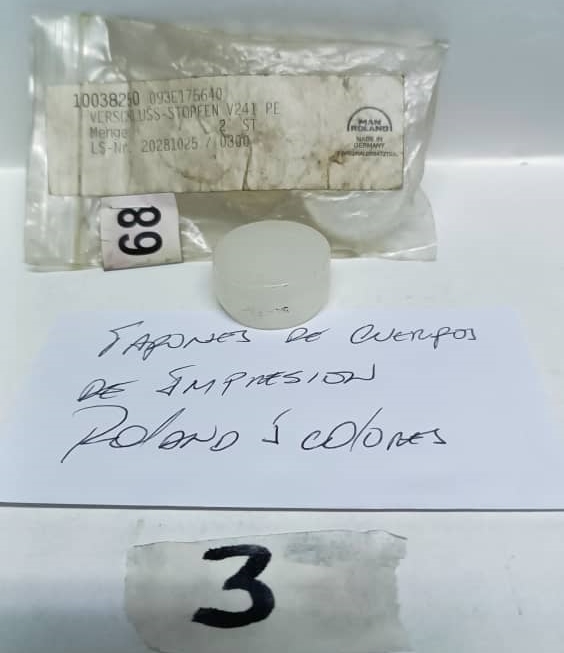 10038250 093E176640
VERSCHLUSS-STOPFEN V241 PE
Menge 2 ST
LS-Nr. 20281025 / 0300
MAN
ROLAND
MADE IN
GERMANY
89
TAPONES DE CUERPOS
DE IMPRESION
ROLAND 5 COLORES
3